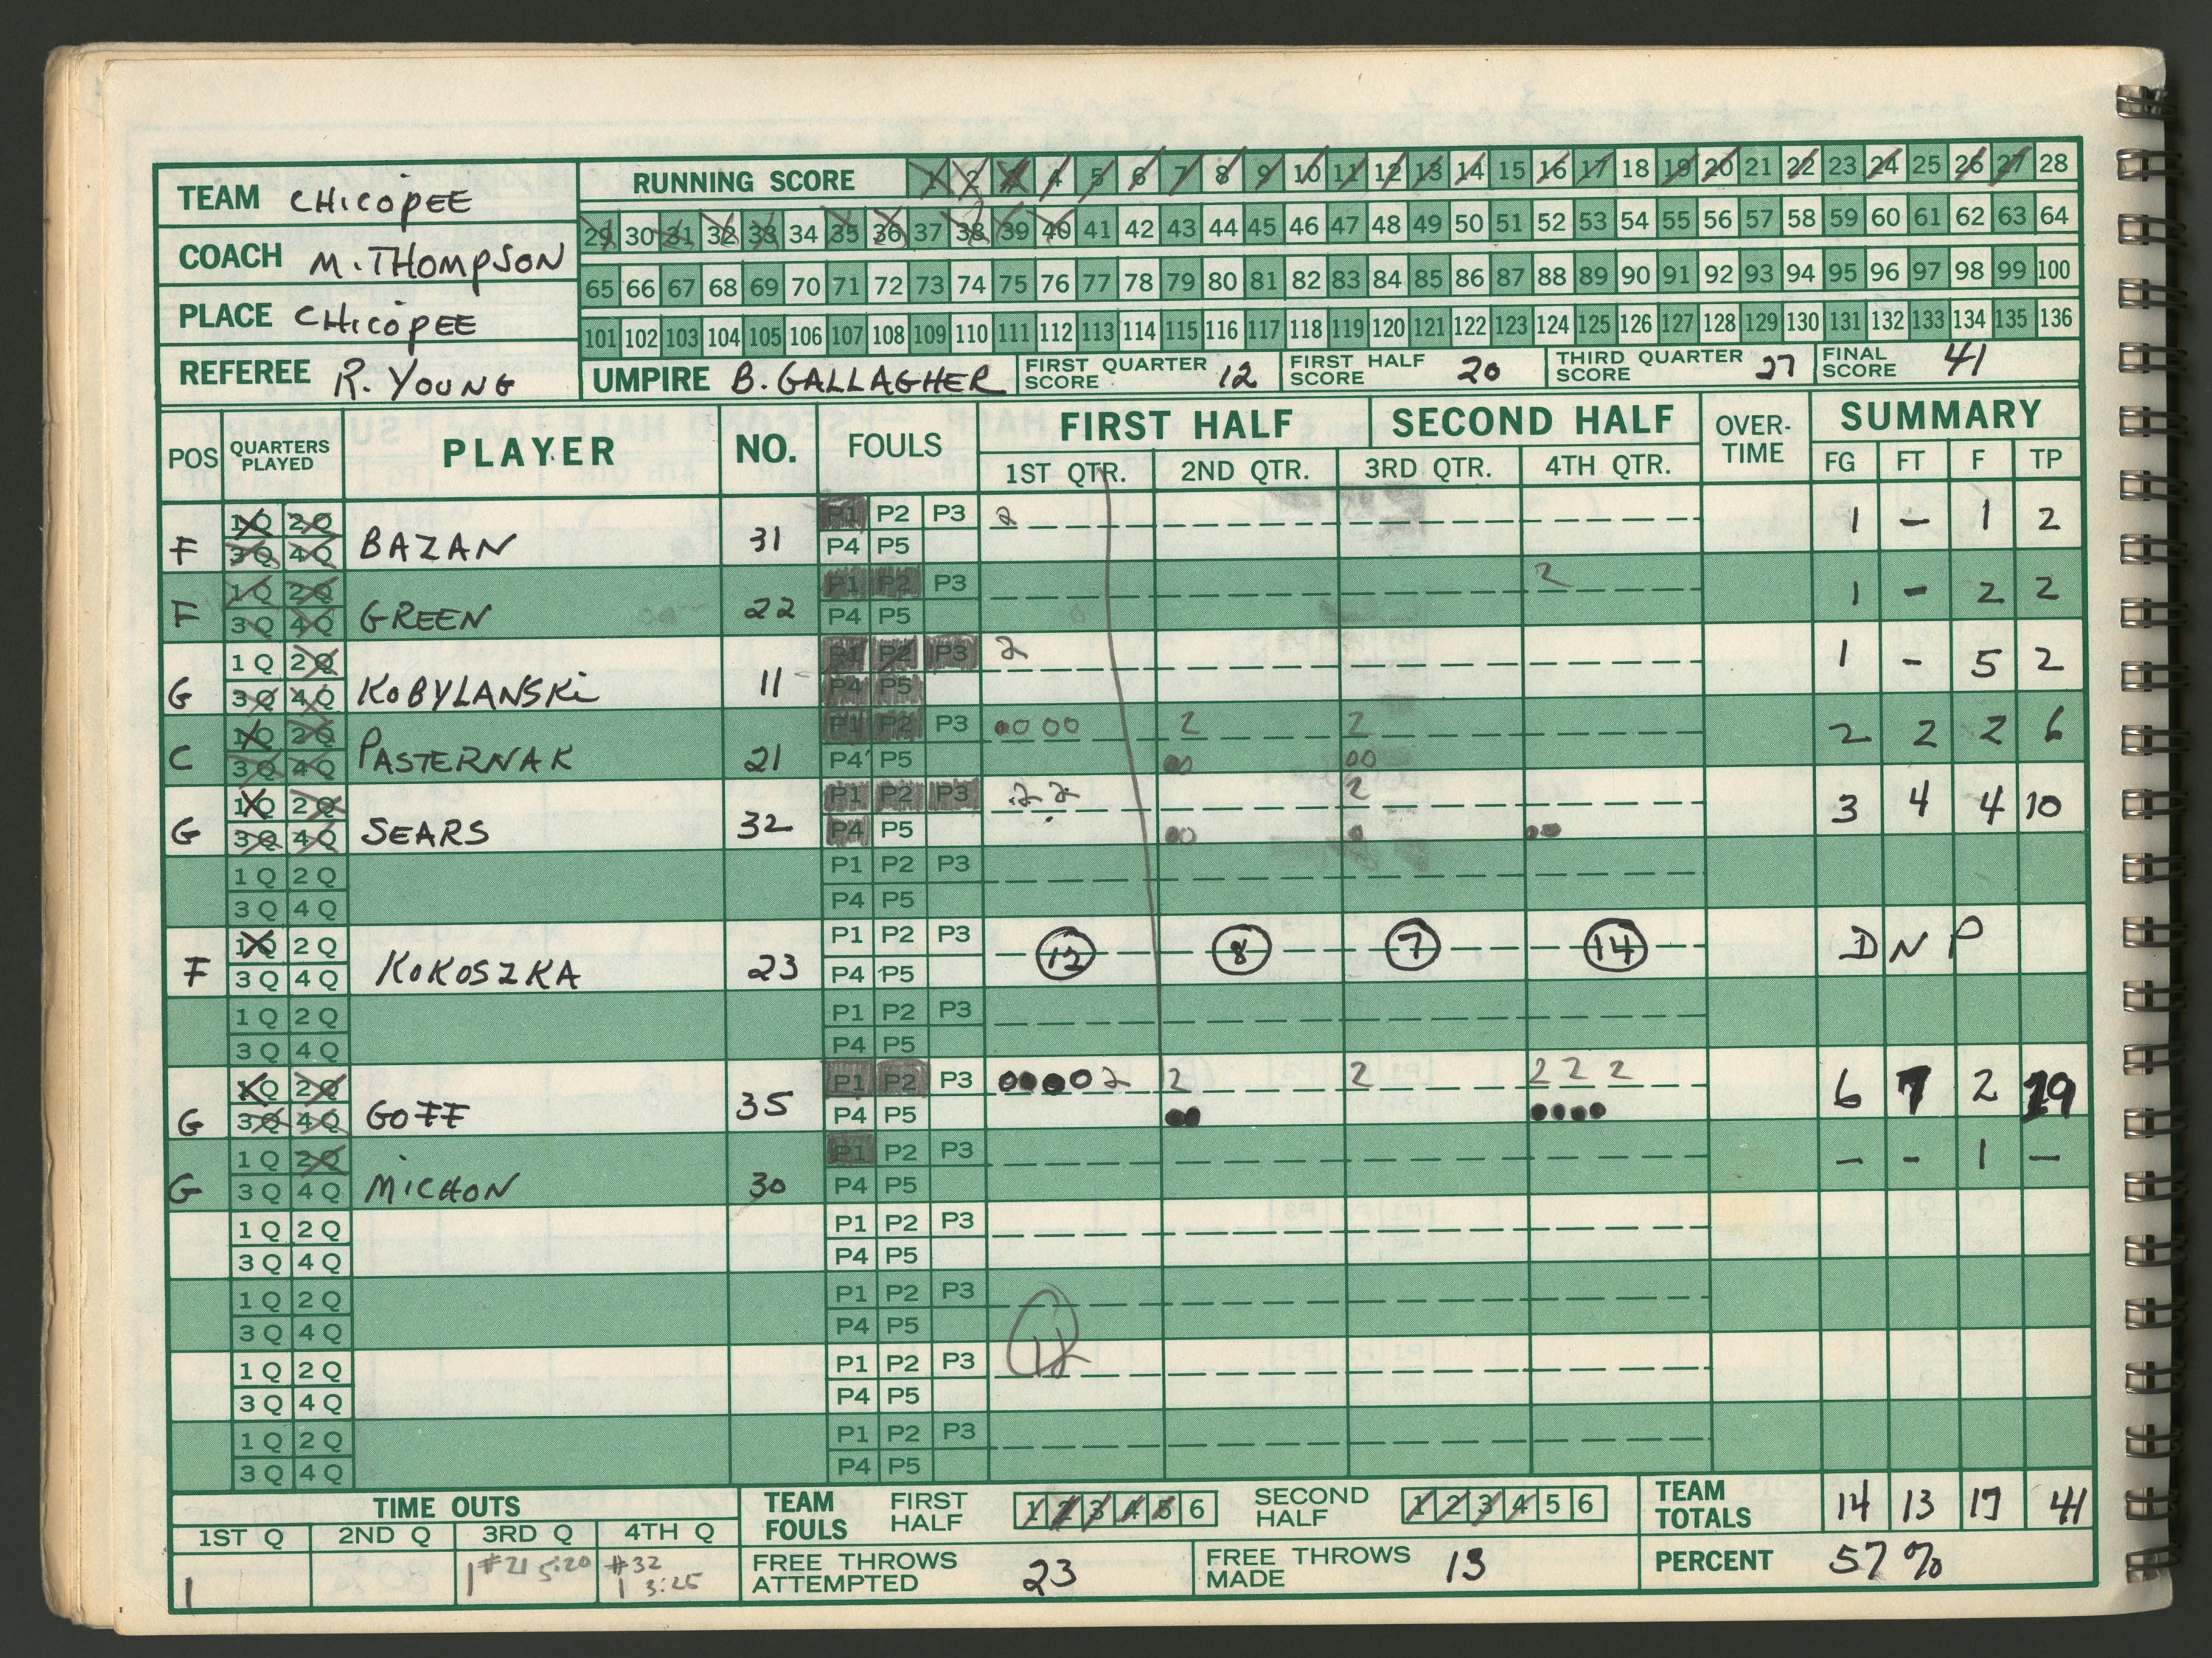 TEAM CHICOPEE
COACH M. THOMPSON
PLACE CHICOPEE
REFEREE R. YOUNG
RUNNING SCORE 1 2 3 4 5 6 7 8 9 10 11 12 13 14 15 16 17 18 19 20 21 22 23 24 25 26 27 28
29 30 31 32 33 34 35 36 37 38 39 40 41 42 43 44 45 46 47 48 49 50 51 52 53 54 55 56 57 58 59 60 61 62 63 64
65 66 67 68 69 70 71 72 73 74 75 76 77 78 79 80 81 82 83 84 85 86 87 88 89 90 91 92 93 94 95 96 97 98 99 100
101 102 103 104 105 106 107 108 109 110 111 112 113 114 115 116 117 118 119 120 121 122 123 124 125 126 127 128 129 130 131 132 133 134 135 136
UMPIRE B. GALLAGHER FIRST QUARTER SCORE 12 FIRST HALF SCORE 20 THIRD QUARTER SCORE 27 FINAL SCORE 41
POS QUARTERS PLAYED PLAYER NO. FOULS FIRST HALF SECOND HALF OVER-TIME SUMMARY
1ST QTR. 2ND QTR. 3RD QTR. 4TH QTR. FG FT F TP
1Q 2Q P1 P2 P3 2 1 - 1 2
F 3Q 4Q BAZAN 31 P4 P5
1Q 2Q P1 P2 P3 2 1 - 2 2
F 3Q 4Q GREEN 22 P4 P5
1Q 2Q P1 P2 P3 2 1 - 5 2
G 3Q 4Q KOBYLANSKI 11 P4 P5
1Q 2Q P1 P2 P3 2 2 2 2 2 6
C 3Q 4Q PASTERNAK 21 P4 P5
1Q 2Q P1 P2 P3 2 2 2 3 4 4 10
G 3Q 4Q SEARS 32 P4 P5
1Q 2Q P1 P2 P3
3Q 4Q P4 P5
1Q 2Q P1 P2 P3 12 8 7 14 DNP
F 3Q 4Q KOKOSZKA 23 P4 P5
1Q 2Q P1 P2 P3
3Q 4Q P4 P5
1Q 2Q P1 P2 P3 2 2 2 2 2 2 6 7 2 19
G 3Q 4Q GOFF 35 P4 P5
1Q 2Q P1 P2 P3 - - 1 -
G 3Q 4Q MICHON 30 P4 P5
1Q 2Q P1 P2 P3
3Q 4Q P4 P5
1Q 2Q P1 P2 P3
3Q 4Q P4 P5
1Q 2Q P1 P2 P3 12
3Q 4Q P4 P5
1Q 2Q P1 P2 P3
3Q 4Q P4 P5
TIME OUTS TEAM FOULS FIRST HALF 1 2 3 4 5 6 SECOND HALF 1 2 3 4 5 6 TEAM TOTALS 14 13 17 41
1ST Q 2ND Q 3RD Q 4TH Q
1 1 #21 5:20 #32 1 3:25 FREE THROWS ATTEMPTED 23 FREE THROWS MADE 13 PERCENT 57%